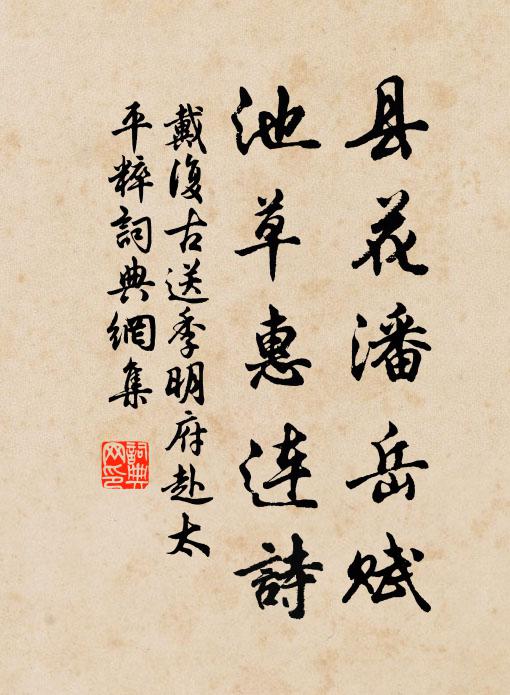 县花潘岳赋
池草惠连詩
戴復古送季明府赴太
平粹詞典網集
詞典网印